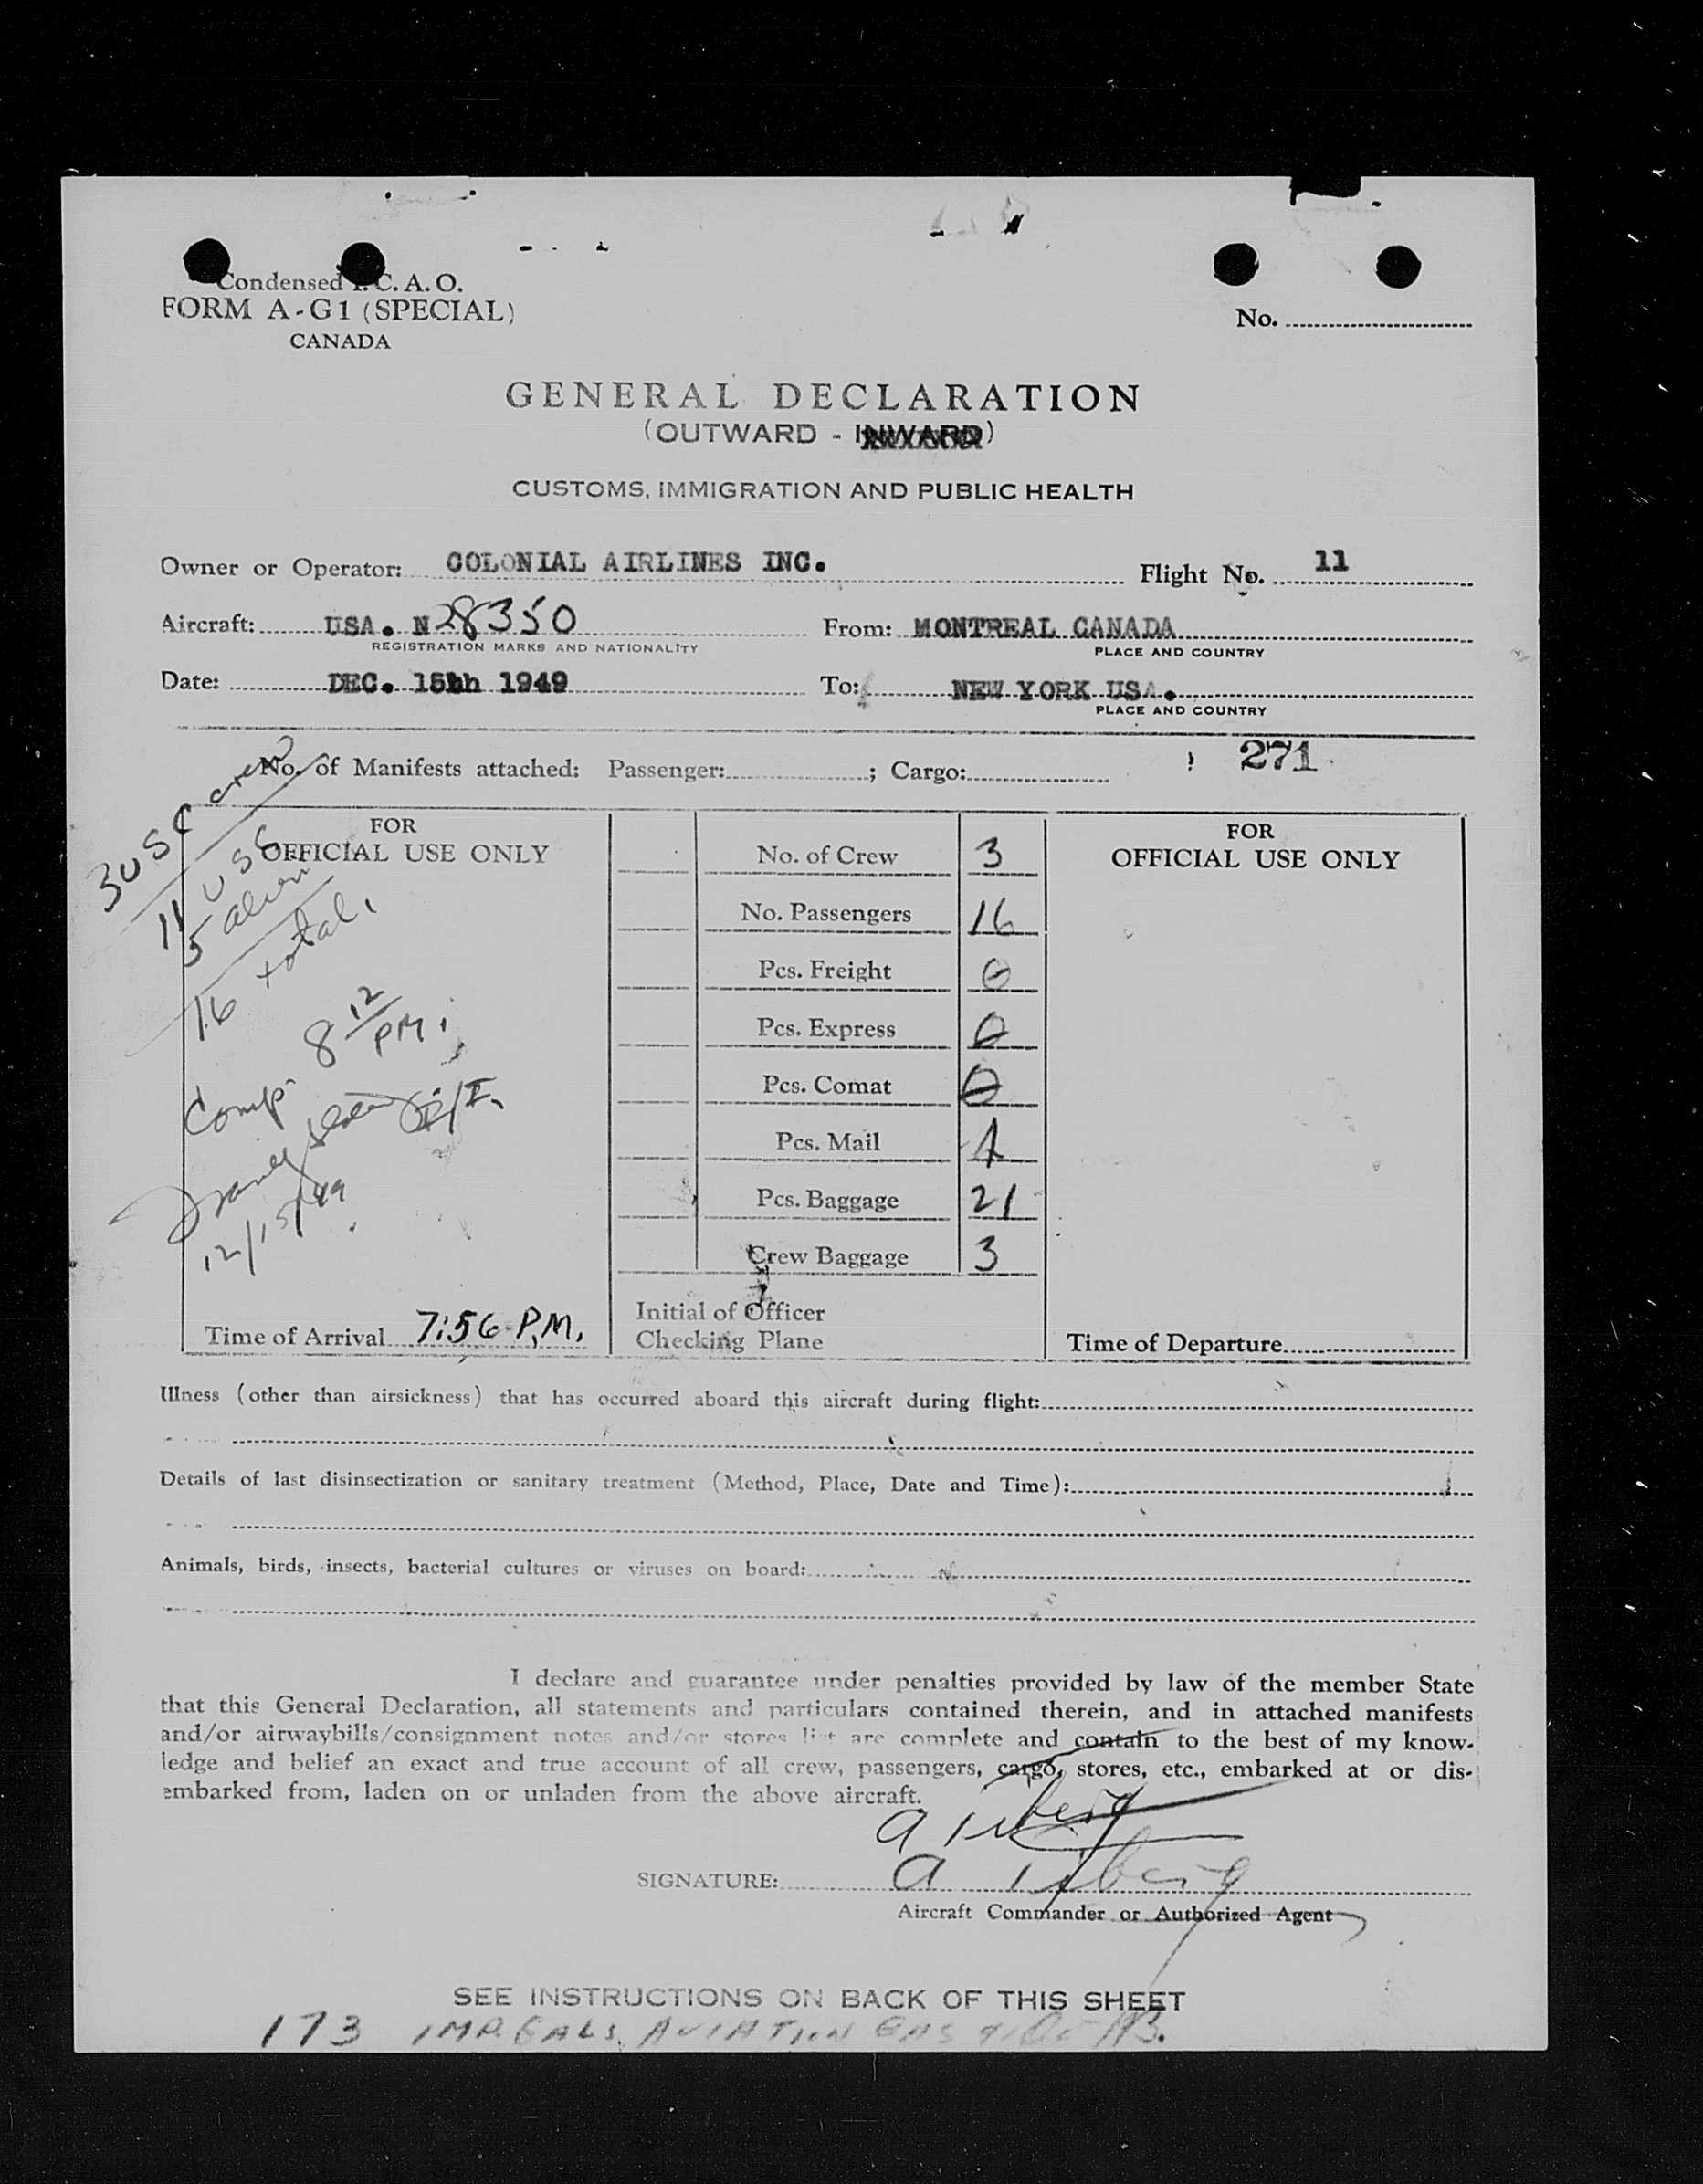 Condensed I. C. A. O.
FORM A-G1 (SPECIAL)
CANADA
No.
GENERAL DECLARATION
(OUTWARD - INWARD)
CUSTOMS, IMMIGRATION AND PUBLIC HEALTH
Owner or Operator: COLONIAL AIRLINES INC. Flight No. 11
Aircraft: USA. N 28350 From: MONTREAL CANADA
REGISTRATION MARKS AND NATIONALITY PLACE AND COUNTRY
Date: DEC. 15th 1949 To: NEW YORK USA.
PLACE AND COUNTRY
No. of Manifests attached: Passenger: ; Cargo: 271
3 USC crew
11 USC
5 alien
16 total.
8 12 PM.
Comp.
I/I.
12/15/49
FOR
OFFICIAL USE ONLY
Time of Arrival 7:56 P.M.
No. of Crew 3
No. Passengers 16
Pcs. Freight 0
Pcs. Express 0
Pcs. Comat 0
Pcs. Mail
Pcs. Baggage 21
Crew Baggage 3
Initial of Officer
Checking Plane
FOR
OFFICIAL USE ONLY
Time of Departure
Illness (other than airsickness) that has occurred aboard this aircraft during flight:
Details of last disinsectization or sanitary treatment (Method, Place, Date and Time):
Animals, birds, insects, bacterial cultures or viruses on board:
I declare and guarantee under penalties provided by law of the member State
that this General Declaration, all statements and particulars contained therein, and in attached manifests
and/or airwaybills/consignment notes and/or stores list are complete and contain to the best of my know-
ledge and belief an exact and true account of all crew, passengers, cargo, stores, etc., embarked at or dis-
embarked from, laden on or unladen from the above aircraft.
SIGNATURE:
Aircraft Commander or Authorized Agent
SEE INSTRUCTIONS ON BACK OF THIS SHEET
173 IMP. GALS. AVIATION GAS